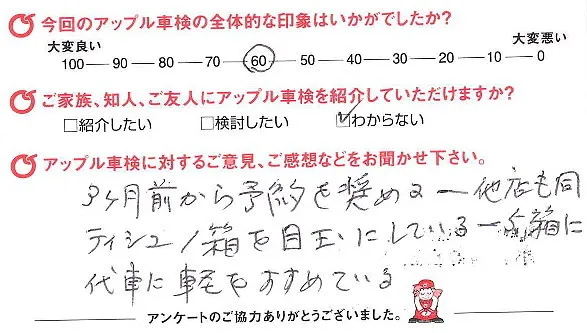 今回のアップル車検の全体的な印象はいかがでしたか?
大変良い 大変悪い
100 90 80 70 60 50 40 30 20 10 0
ご家族、知人、ご友人にアップル車検を紹介していただけますか?
□紹介したい □検討したい ☑わからない
アップル車検に対するご意見、ご感想などをお聞かせ下さい。
3ヶ月前から予約を奨める一他店も同
ティシュ1箱を目玉にしている一 箱に
代車に軽をすすめている
アンケートのご協力ありがとうございました。